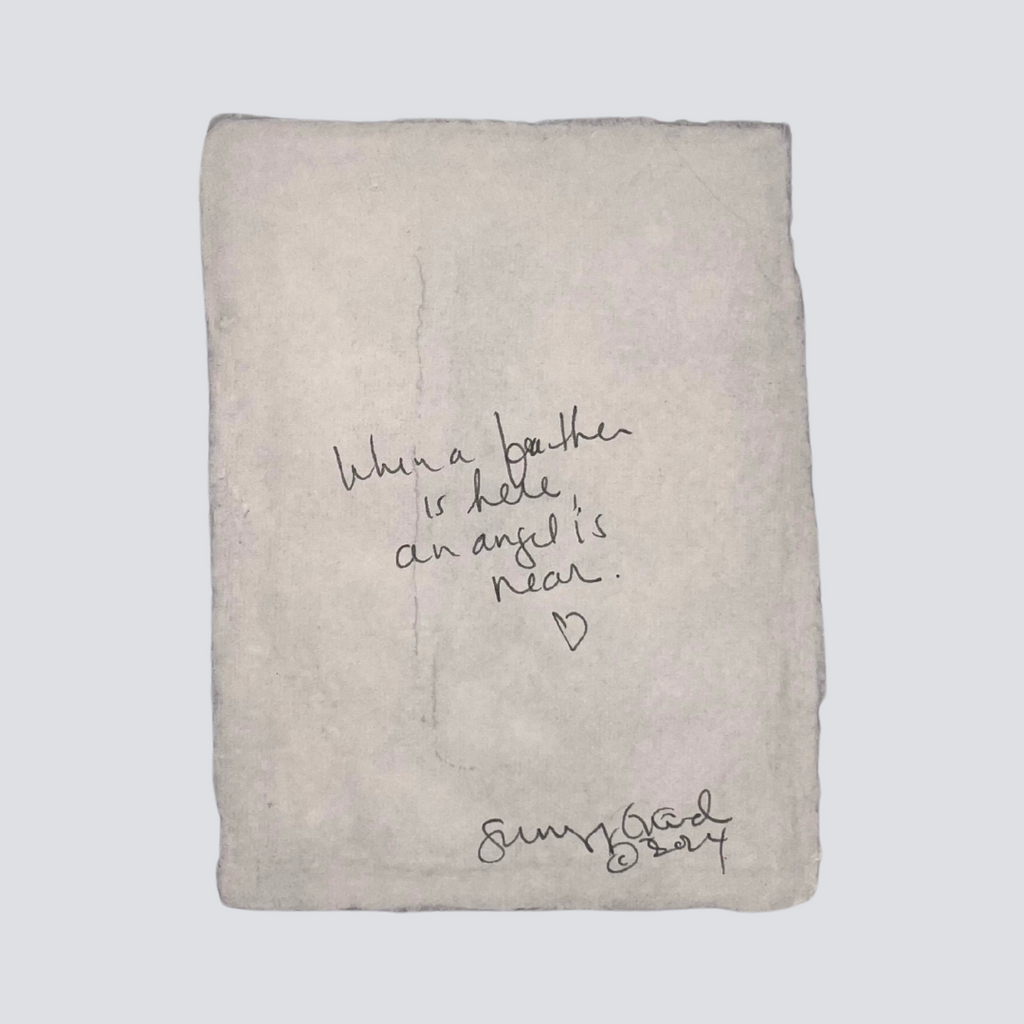 When a feather
is here,
an angel is
near.
♡
© 2024